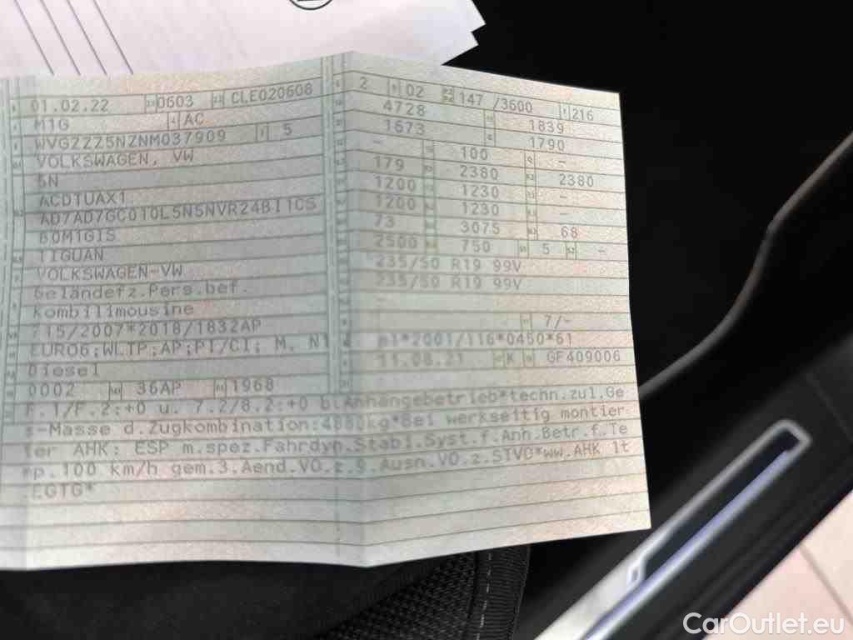 01.02.22 0603 CLE020608
M1G AC
WVGZZZ5NZNM037909 5
VOLKSWAGEN, VW
5N
ACD1UAX1
AD7AD7GC010L5N5NVR24BI1CS
TIGUAN
VOLKSWAGEN-VW
Geländefz.Pers.bef.
Kombilimousine
715/2007*2018/1832AP
EURO6;WLTP;AP;PI/CI; M, N1
Diesel
0002 36AP 1968
2 02 147 /3600 216
4728 1839
1673 1790
- 100 -
179 2380 2380
1200 1230 -
1200 1230 -
73 3075 68
2500 750 5 -
235/50 R19 99V
235/50 R19 99V
7/-
e1*2001/116*0450*61
11.08.21 K GF409006
F.1/F.2:+0 u. 7.2/8.2:+0 b.Anhangebetrieb*techn.zul.Ge
s-Masse d.Zugkombination: *Bei werkseitig montier
ter AHK: ESP m.spez.Fahrdyn.Stabi.Syst.f.Anh.Betr.f.Te
mp.100 km/h gem.3.Aend.VO.z.9.Ausn.VO.z.STVO*ww.AHK lt
EGTG*
CarOutlet.eu